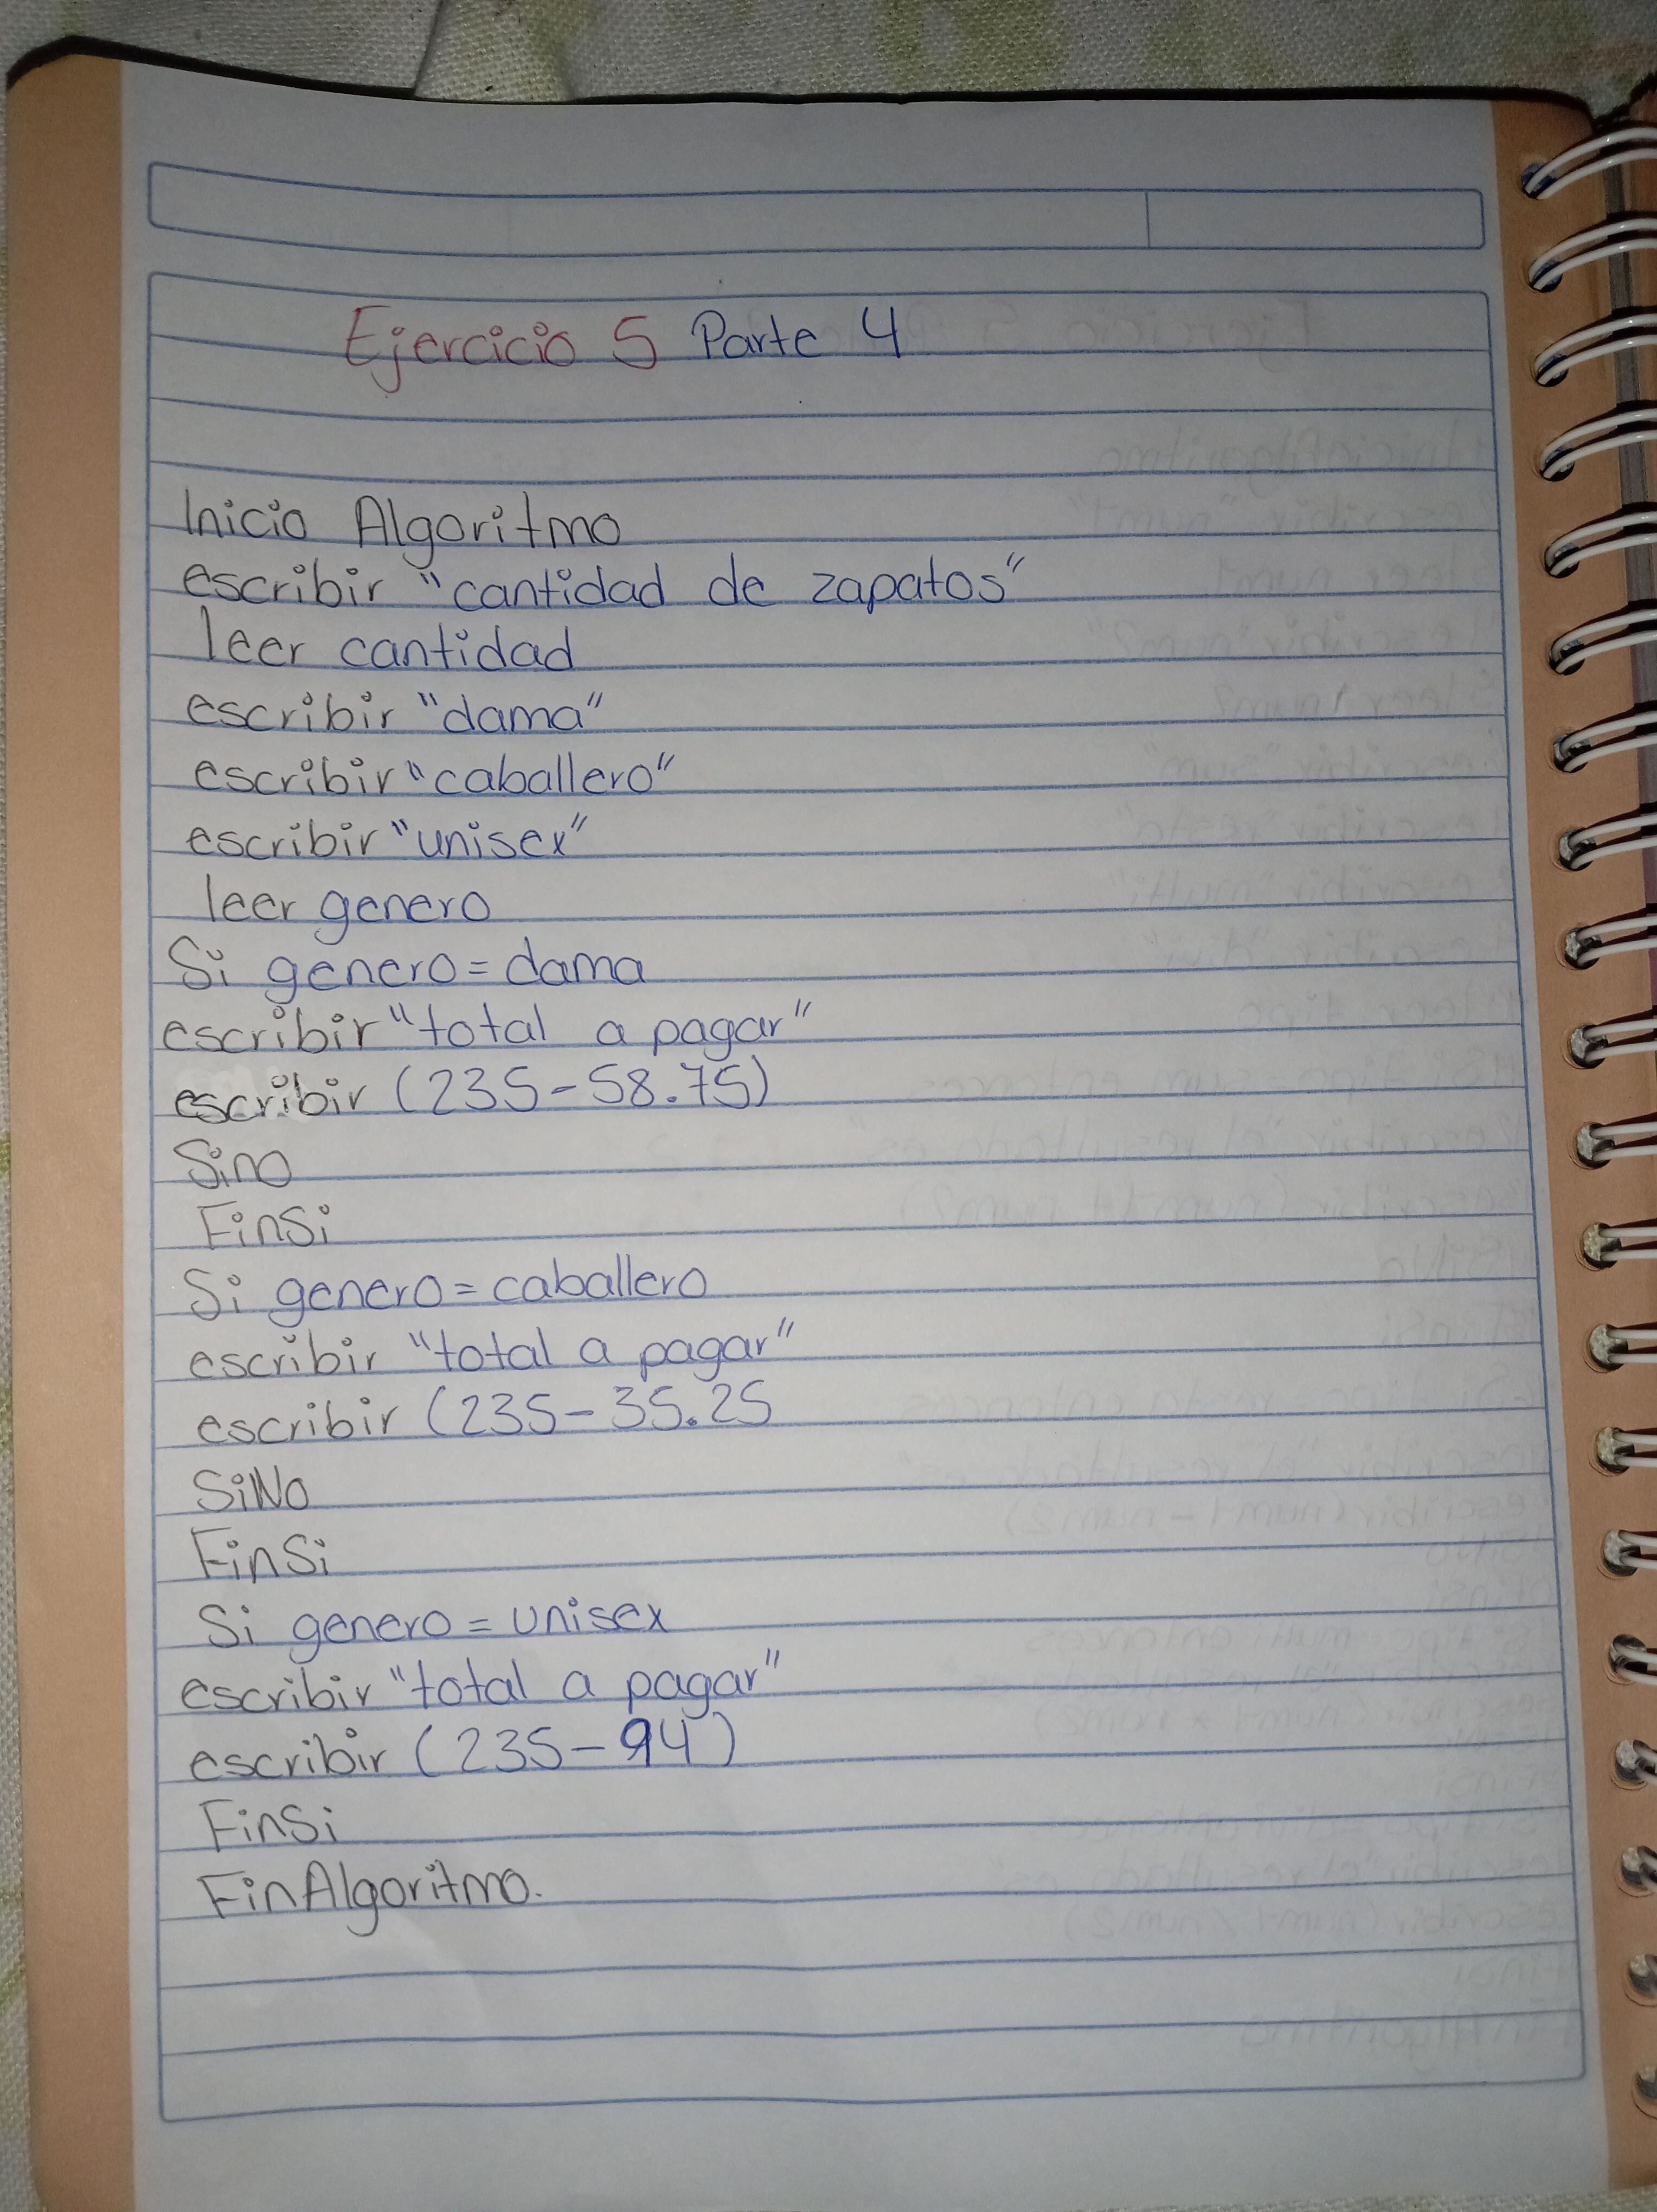 Ejercicio 5 Parte 4
Inicio Algoritmo
escribir "cantidad de zapatos"
leer cantidad
escribir "dama"
escribir "caballero"
escribir "unisex"
leer genero
Si genero = dama
escribir "total a pagar"
escribir (235-58.75)
Sino
FinSi
Si genero = caballero
escribir "total a pagar"
escribir (235-35.25
SiNo
FinSi
Si genero = unisex
escribir "total a pagar"
escribir (235-94)
FinSi
FinAlgoritmo.